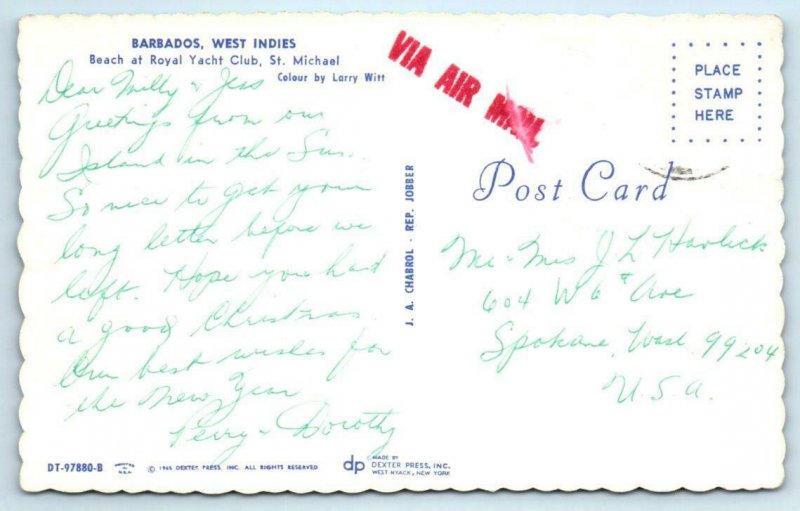 BARBADOS, WEST INDIES
Beach at Royal Yacht Club, St. Michael
Colour by Larry Witt
Dear Milly & Jess
Greetings from our
Island in the Sun.
So nice to get your
long letter before we
left. Hope you had
a good Christmas.
Our best wishes for
the New Year
Perry & Dorothy
DT-97880-B
© 1965 DEXTER PRESS, INC. ALL RIGHTS RESERVED
dp
MADE BY
DEXTER PRESS, INC.
WEST NYACK, NEW YORK
J. A. CHABROL - REP. JOBBER
VIA AIR MAIL
PLACE
STAMP
HERE
Post Card
Mr & Mrs J L Havlick
604 W 6th Ave
Spokane, Wash 99204
U.S.A.